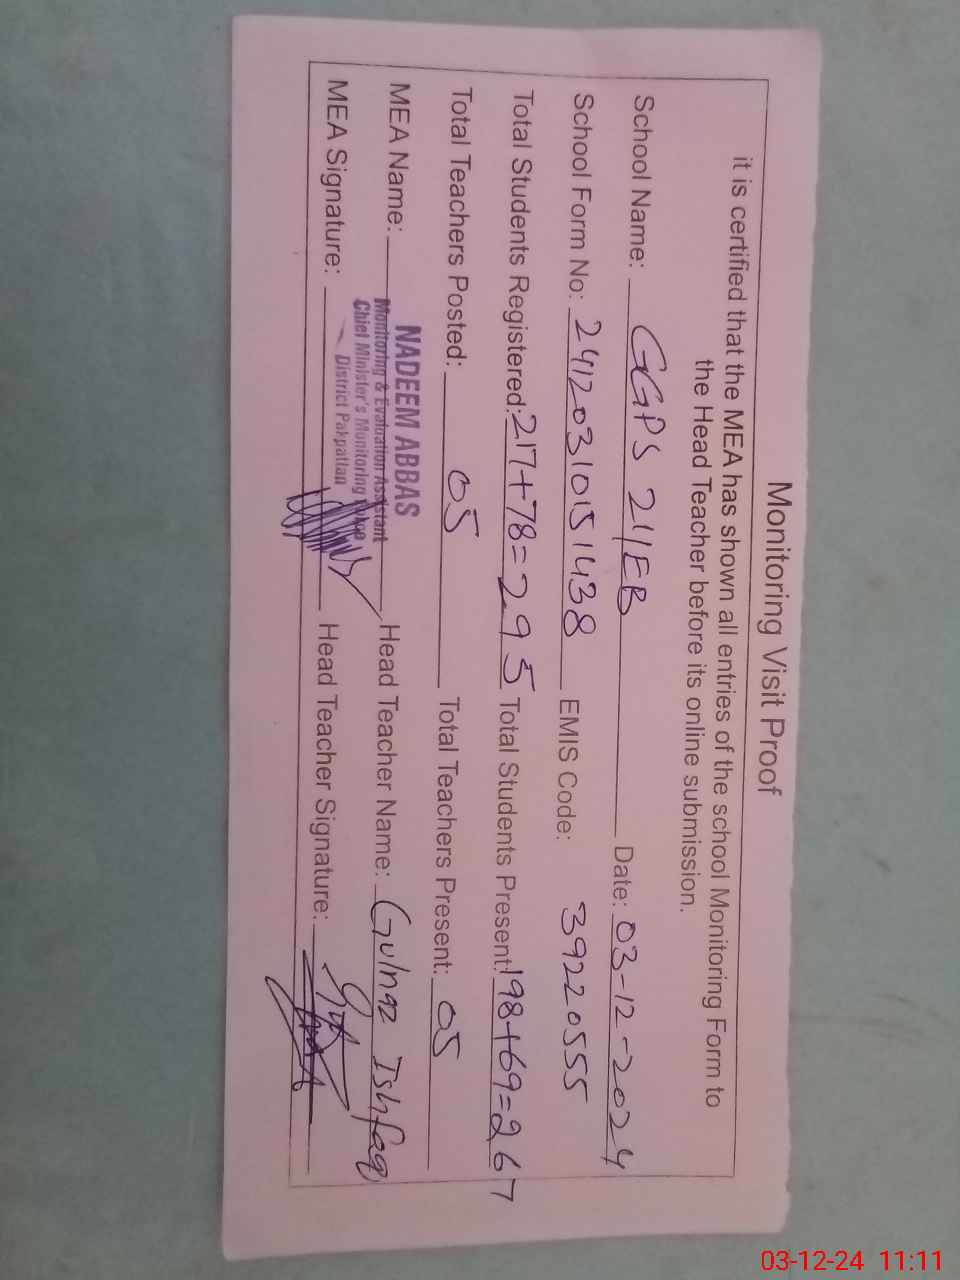 Monitoring Visit Proof
it is certified that the MEA has shown all entries of the school Monitoring Form to
the Head Teacher before its online submission.
School Name: GGPS 21/EB Date: 03-12-2024
School Form No: 2412031051438 EMIS Code: 39220555
Total Students Registered: 217+78=295 Total Students Present: 198+69=267
Total Teachers Posted: 05 Total Teachers Present: 05
MEA Name: NADEEM ABBAS Head Teacher Name: Gulnaz Ishfaq
Monitoring & Evaluation Assistant
Chief Minister's Monitoring Force
District Pakpattan
MEA Signature: Head Teacher Signature:
03-12-24 11:11